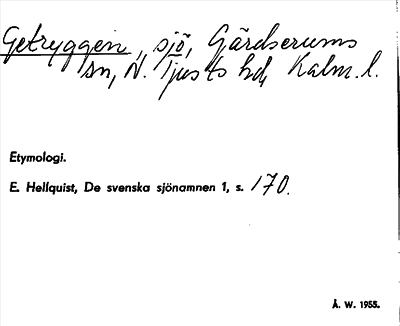 Getryggen, sjö, Gärdserums
sn, N. Tjusts hd, Kalm. l.
Etymologi.
E. Hellquist, De svenska sjönamnen 1, s. 170.
Å. W. 1955.